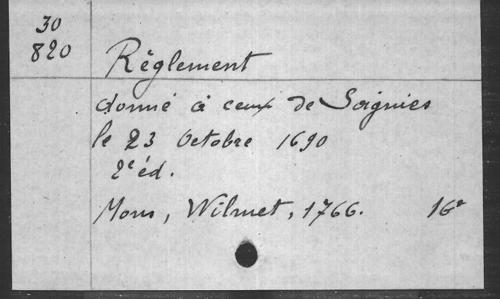 30
820
Règlement
donné à ceux de Soignies
le 23 Octobre 1690
2e éd.
Mons, Wilmet, 1766. 16°